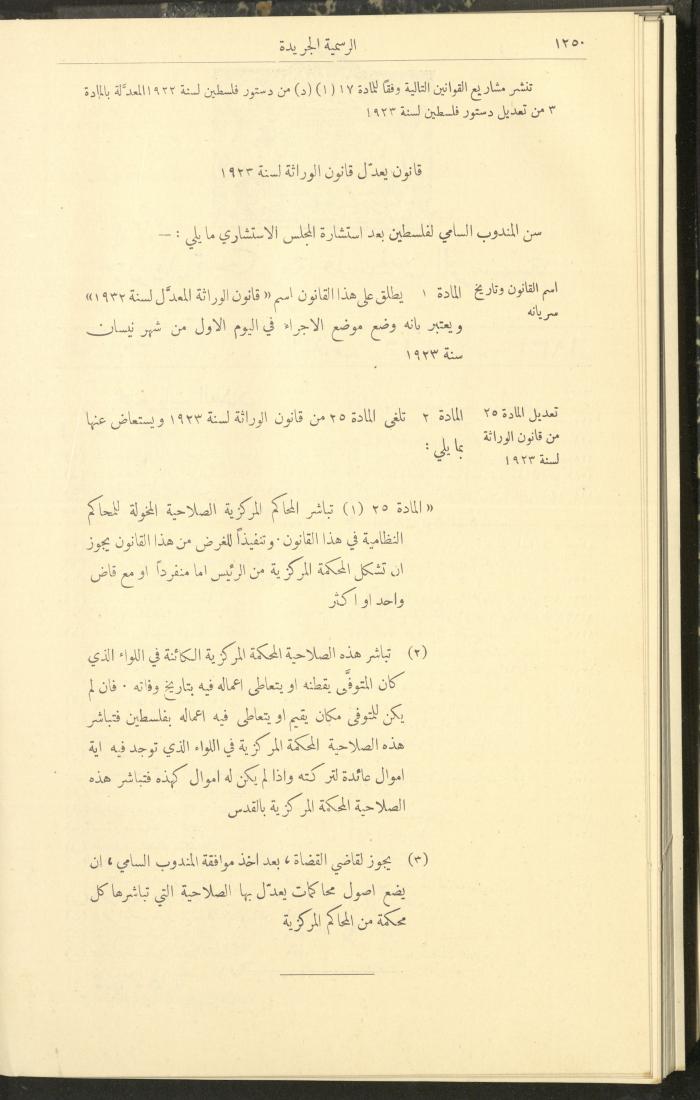 ١٢٥٠
الرسمية الجريدة
تنشر مشاريع القوانين التالية وفقًا للمادة ١٧ (١) (د) من دستور فلسطين لسنة ١٩٢٢ المعدَّلة بالمادة
٣ من تعديل دستور فلسطين لسنة ١٩٢٣
قانون يعدّل قانون الوراثة لسنة ١٩٢٣
سن المندوب السامي لفلسطين بعد استشارة المجلس الاستشاري ما يلي : —
اسم القانون وتاريخ
سريانه
المادة ١ يطلق على هذا القانون اسم « قانون الوراثة المعدَّل لسنة ١٩٣٢»
ويعتبر بانه وضع موضع الاجراء في اليوم الاول من شهر نيسان
سنة ١٩٢٣
تعديل المادة ٢٥
من قانون الوراثة
لسنة ١٩٢٣
المادة ٢ تلغى المادة ٢٥ من قانون الوراثة لسنة ١٩٢٣ ويستعاض عنها
بما يلي :
« المادة ٢٥ (١) تباشر المحاكم المركزية الصلاحية المخولة للمحاكم
النظامية في هذا القانون . وتنفيذاً للغرض من هذا القانون يجوز
ان تشكل المحكمة المركزية من الرئيس اما منفرداً او مع قاض
واحد او اكثر
(٢) تباشر هذه الصلاحية المحكمة المركزية الكائنة في اللواء الذي
كان المتوفَّى يقطنه او يتعاطى اعماله فيه بتاريخ وفاته . فان لم
يكن للمتوفى مكان يقيم او يتعاطى فيه اعماله بفلسطين فتباشر
هذه الصلاحية المحكمة المركزية في اللواء الذي توجد فيه اية
اموال عائدة لتركته واذا لم يكن له اموال كهذه فتباشر هذه
الصلاحية المحكمة المركزية بالقدس
(٣) يجوز لقاضي القضاة ، بعد اخذ موافقة المندوب السامي ، ان
يضع اصول محاكمات يعدّل بها الصلاحية التي تباشرها كل
محكمة من المحاكم المركزية